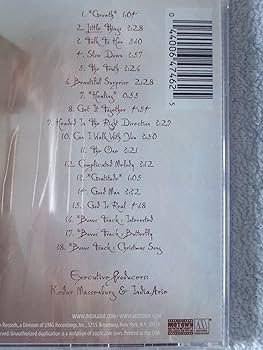 1. *Growth* 1:04
2. Little Things 3:28
3. Talk To Her 5:10
4. Slow Down 3:57
5. The Truth 3:26
6. Beautiful Surprise 2:28
7. *Healing* 0:55
8. Get It Together 4:54
9. Headed In The Right Direction 3:29
10. Can I Walk With You 3:50
11. The One 3:21
12. Complicated Melody 3:12
13. *Gratitude* 1:05
14. Good Man 3:32
15. God Is Real 4:18
16. *Bonus Track: Interested
17. *Bonus Track: Butterfly
18. *Bonus Track: Christmas Song
Executive Producers:
Kedar Massenburg & India.Arie
WWW.INDIAARIE.COM WWW.MOTOWN.COM
Records, a Division of UMG Recordings, Inc., 1755 Broadway, New York, NY 10019
served. Unauthorized duplication is a violation of applicable laws. Printed in the USA
0 44006 47462 5